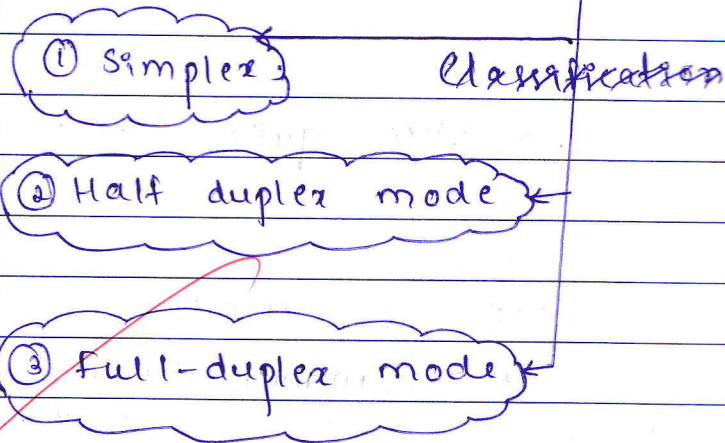 ① Simplex
Classification
② Half duplex mode
③ Full-duplex mode